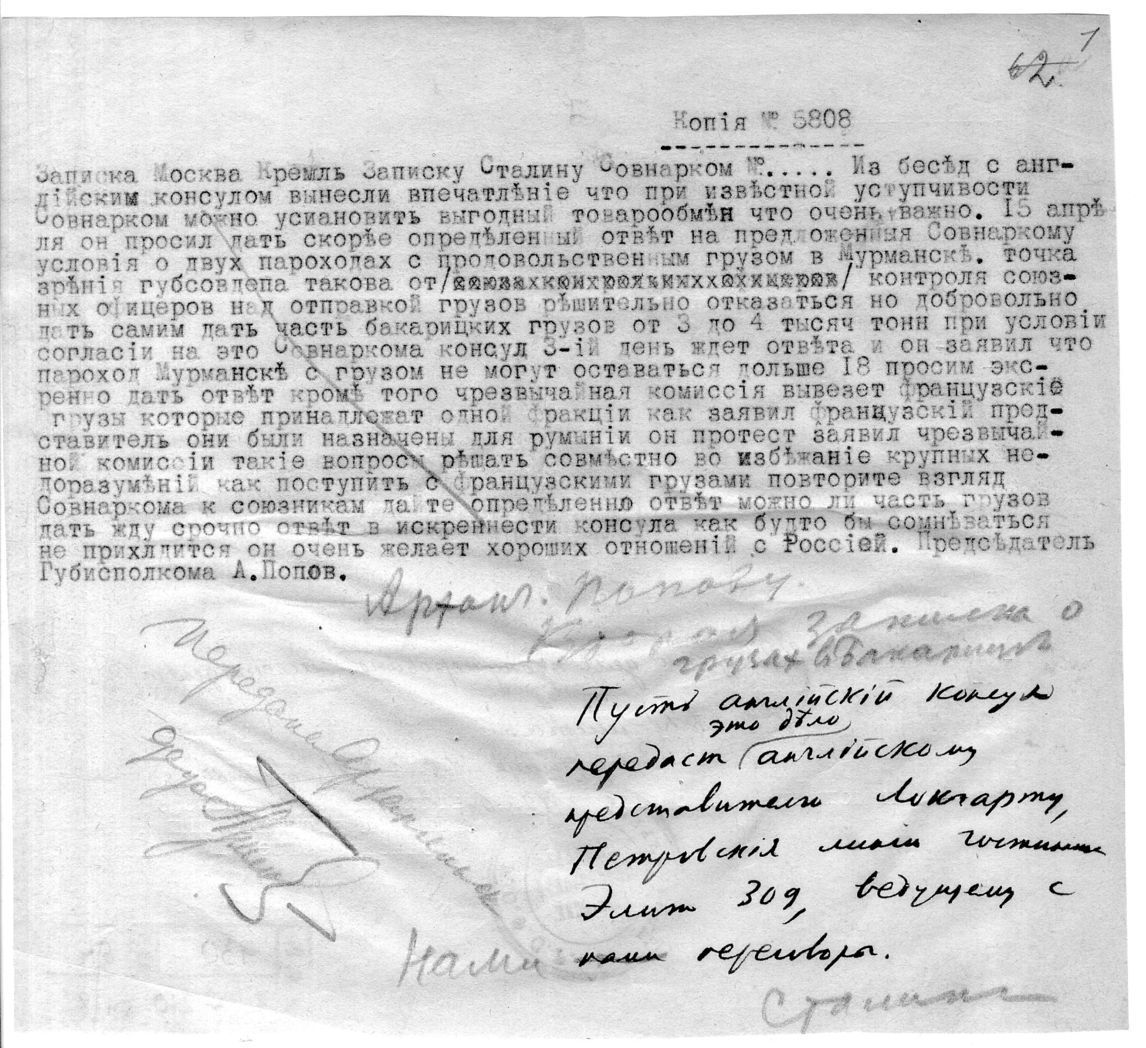 1
62
Копія № 5808
Записка Москва Кремль Записку Сталину Совнарком №..... Из бесѣд с анг-
лійским консулом вынесли впечатлѣніе что при извѣстной уступчивости
Совнарком можно усиановить выгодный товарообмѣн что очень важно. 15 апрѣ
ля он просил дать скорѣе опредѣленный отвѣт на предложенныя Совнаркому
условія о двух пароходах с продовольственным грузом в Мурманскѣ. точка
зрѣнія губсовдепа такова от/ / контроля союз-
ных офицеров над отправкой грузов рѣшительно отказаться но добровольно
дать самим дать часть бакарицких грузов от 3 до 4 тысяч тонн при условіи
согласіи на это Совнаркома консул 3-ій день ждет отвѣта и он заявил что
пароход Мурманскѣ с грузом не могут оставаться дольше 18 просим экс-
ренно дать отвѣт кромѣ того чрезвычайная комиссія вывезет французскіе
грузы которые принадлежат одной фракціи как заявил французскій пред-
ставитель они были назначены для румыніи он протест заявил чрезвычай-
ной комиссіи такіе вопросы рѣшать совмѣстно во избѣжаніе крупных не-
доразумѣній как поступить с французскими грузами повторите взгляд
Совнаркома к союзникам дайте опредѣленно отвѣт можно ли часть грузов
дать жду срочно отвѣт в искреннести консула как будто бы сомнѣваться
не прихлдится он очень желает хороших отношеній с Россіей. Предсѣдатель
Губисполкома А.Попов.
Архан. Попову.
записка о
грузах в Бакарицѣ
Пусть англійскій консул
это дѣло
передаст англійскому
представителю Локкарту,
Петровскія линіи гостиница
Элит 309, ведущему с
нами переговоры.
нами
Передана
Сталин